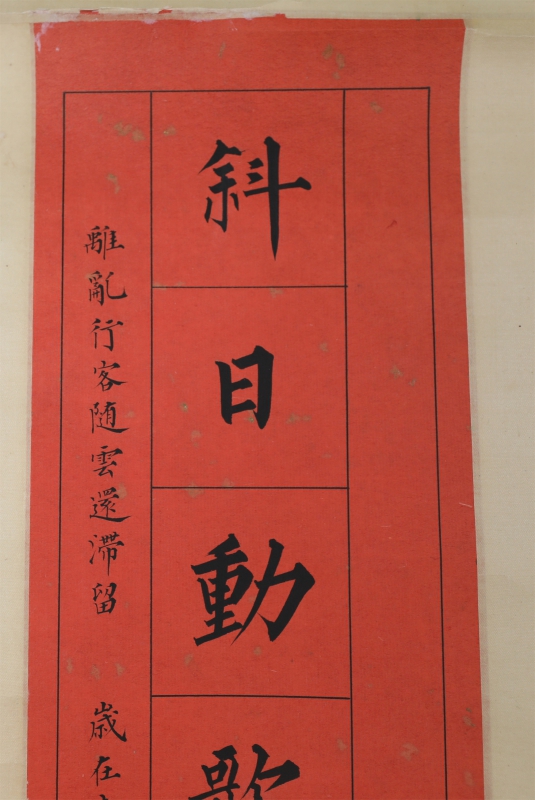 斜日動歌
離亂行客随雲還滯留 歳在